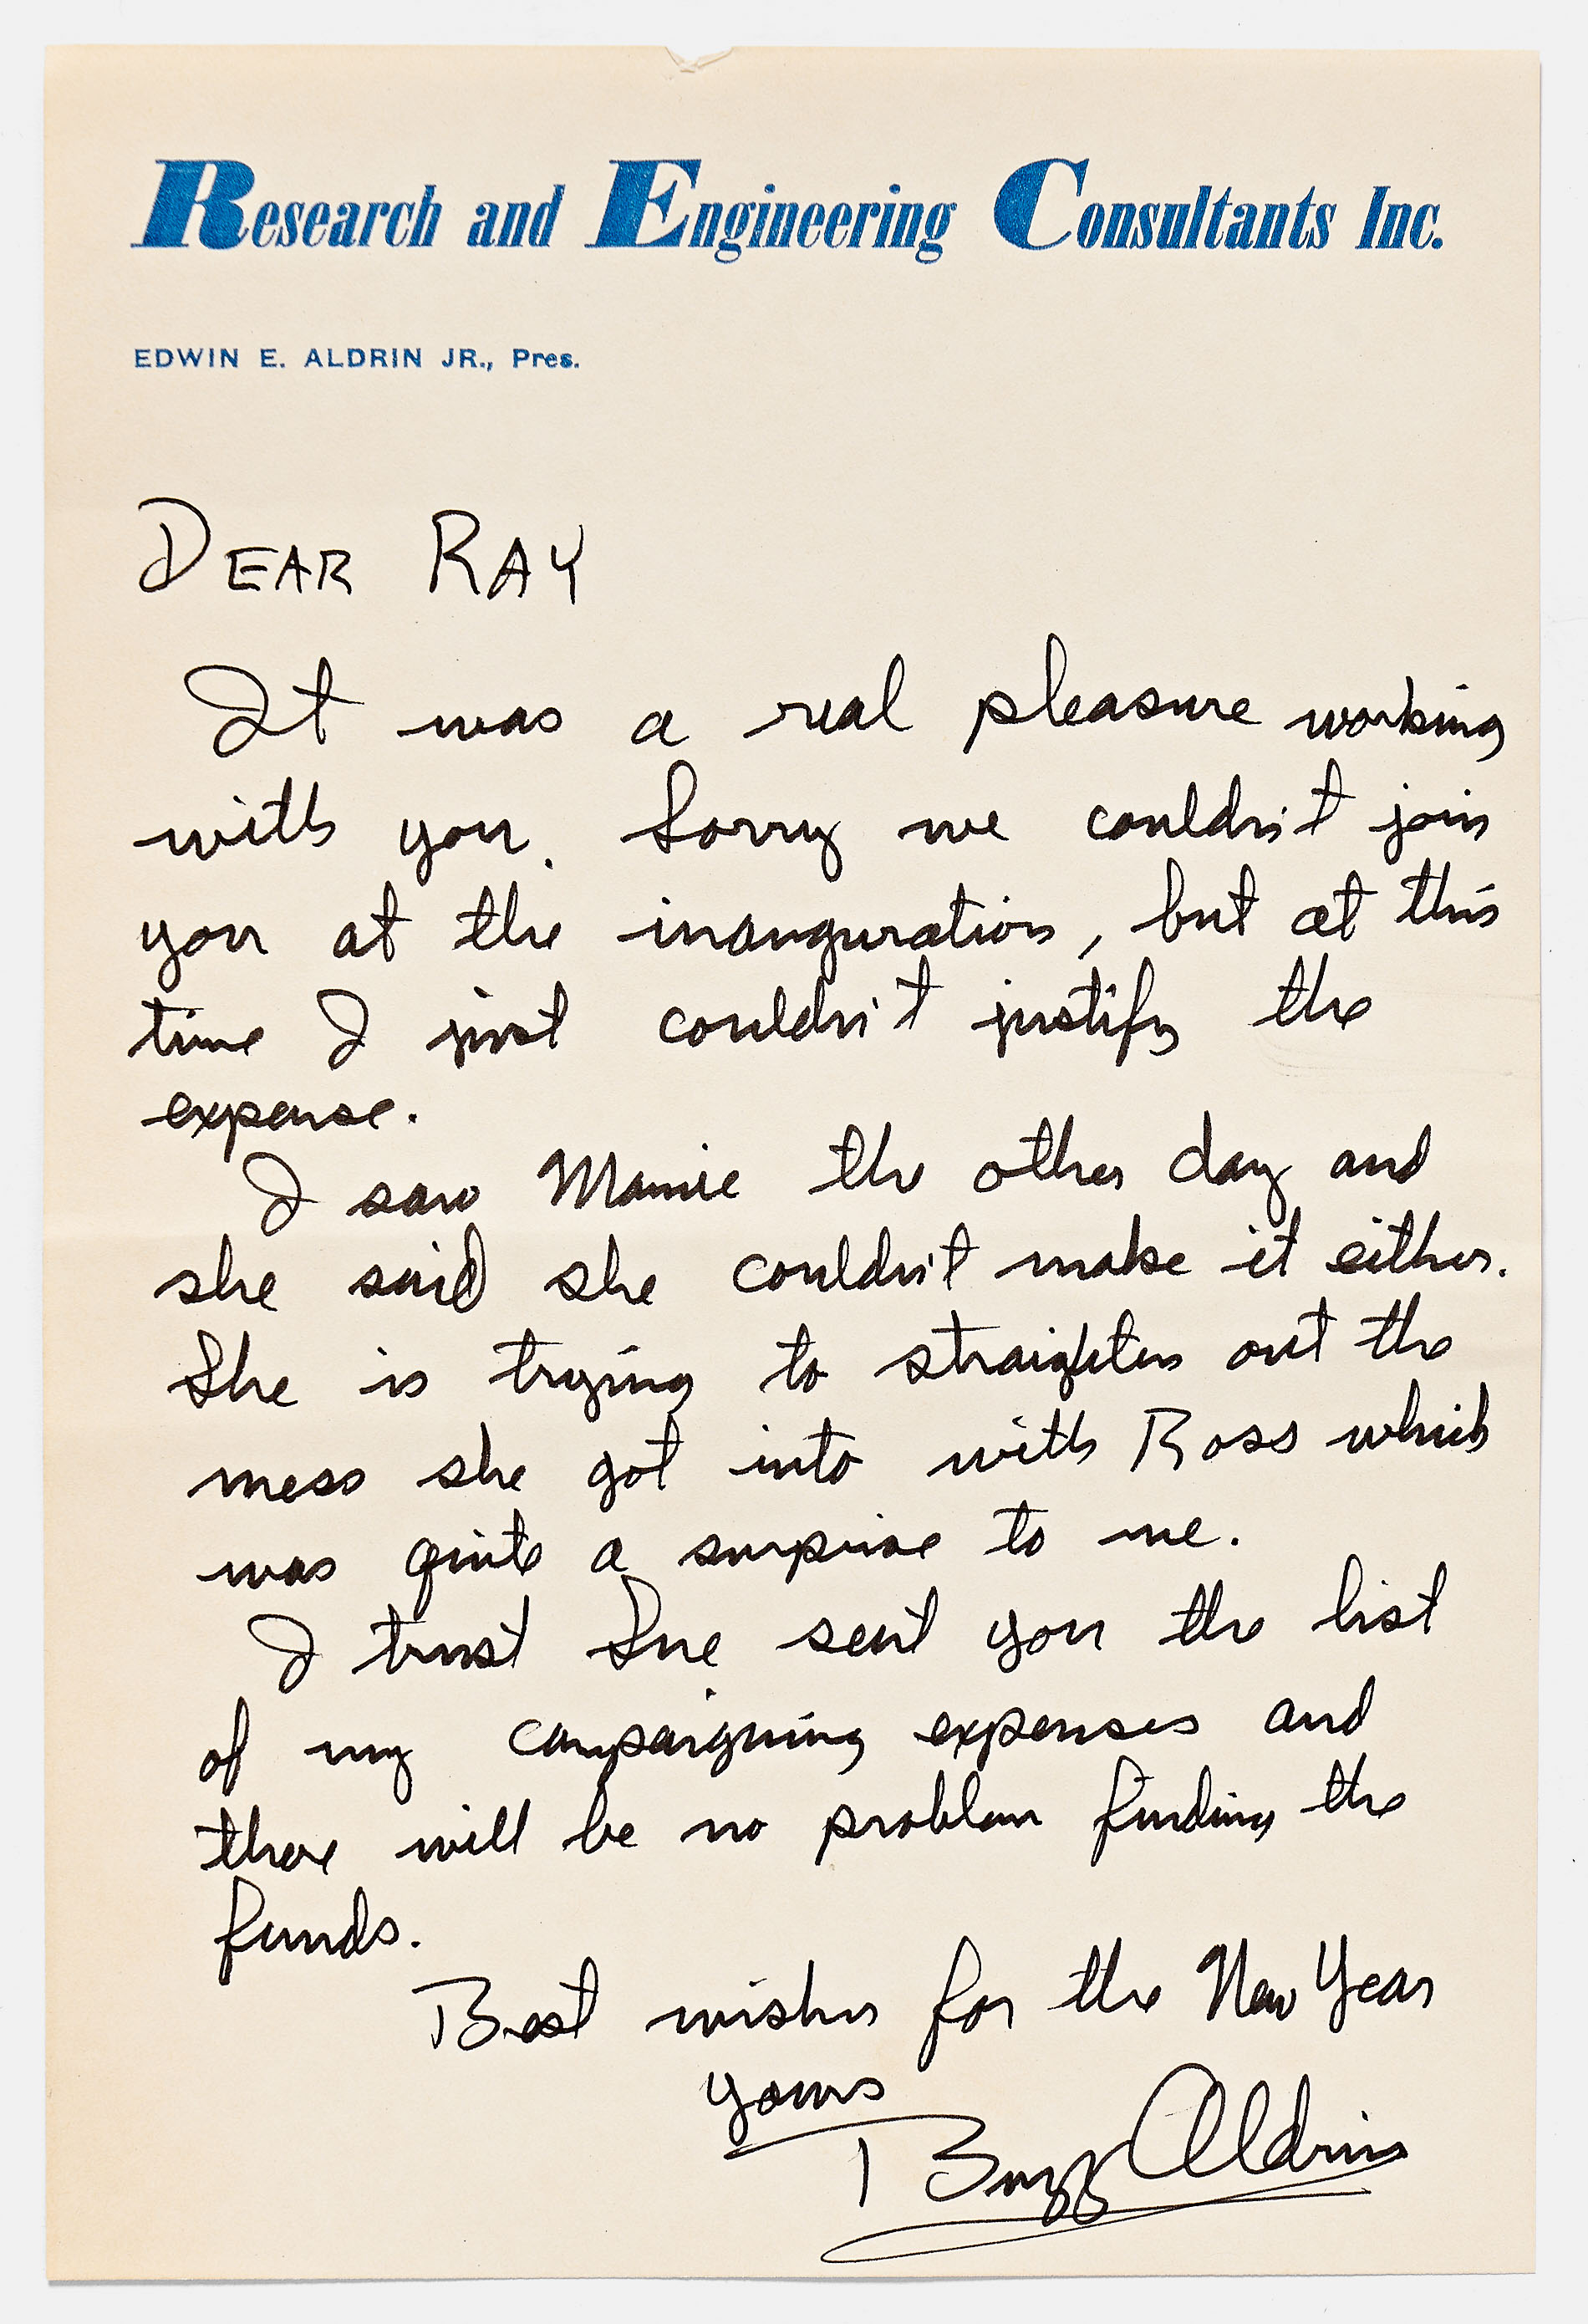 Research and Engineering Consultants Inc.
EDWIN E. ALDRIN JR., Pres.
DEAR RAY
It was a real pleasure working
with you. Sorry we couldn't join
you at the inauguration, but at this
time I just couldn't justify the
expense.
I saw Mamie the other day and
she said she couldn't make it either.
She is trying to straighten out the
mess she got into with Ross which
was quite a surprise to me.
I trust Sue sent you the list
of my campaigning expenses and
there will be no problem finding the
funds.
Best wishes for the New Year
yours
Buzz Aldrin